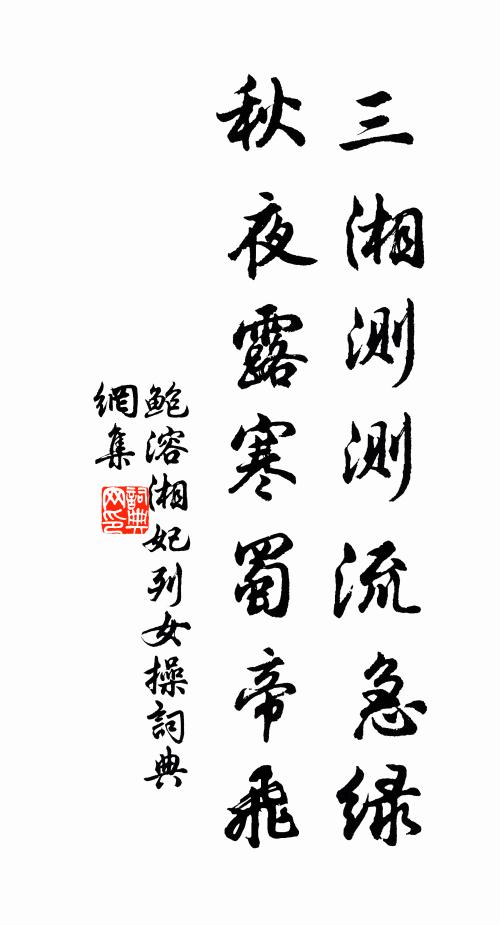 三湘測測流急綠
秋夜露寒蜀帝飛
鮑溶湘妃列女操詞典
網集
詞典網印